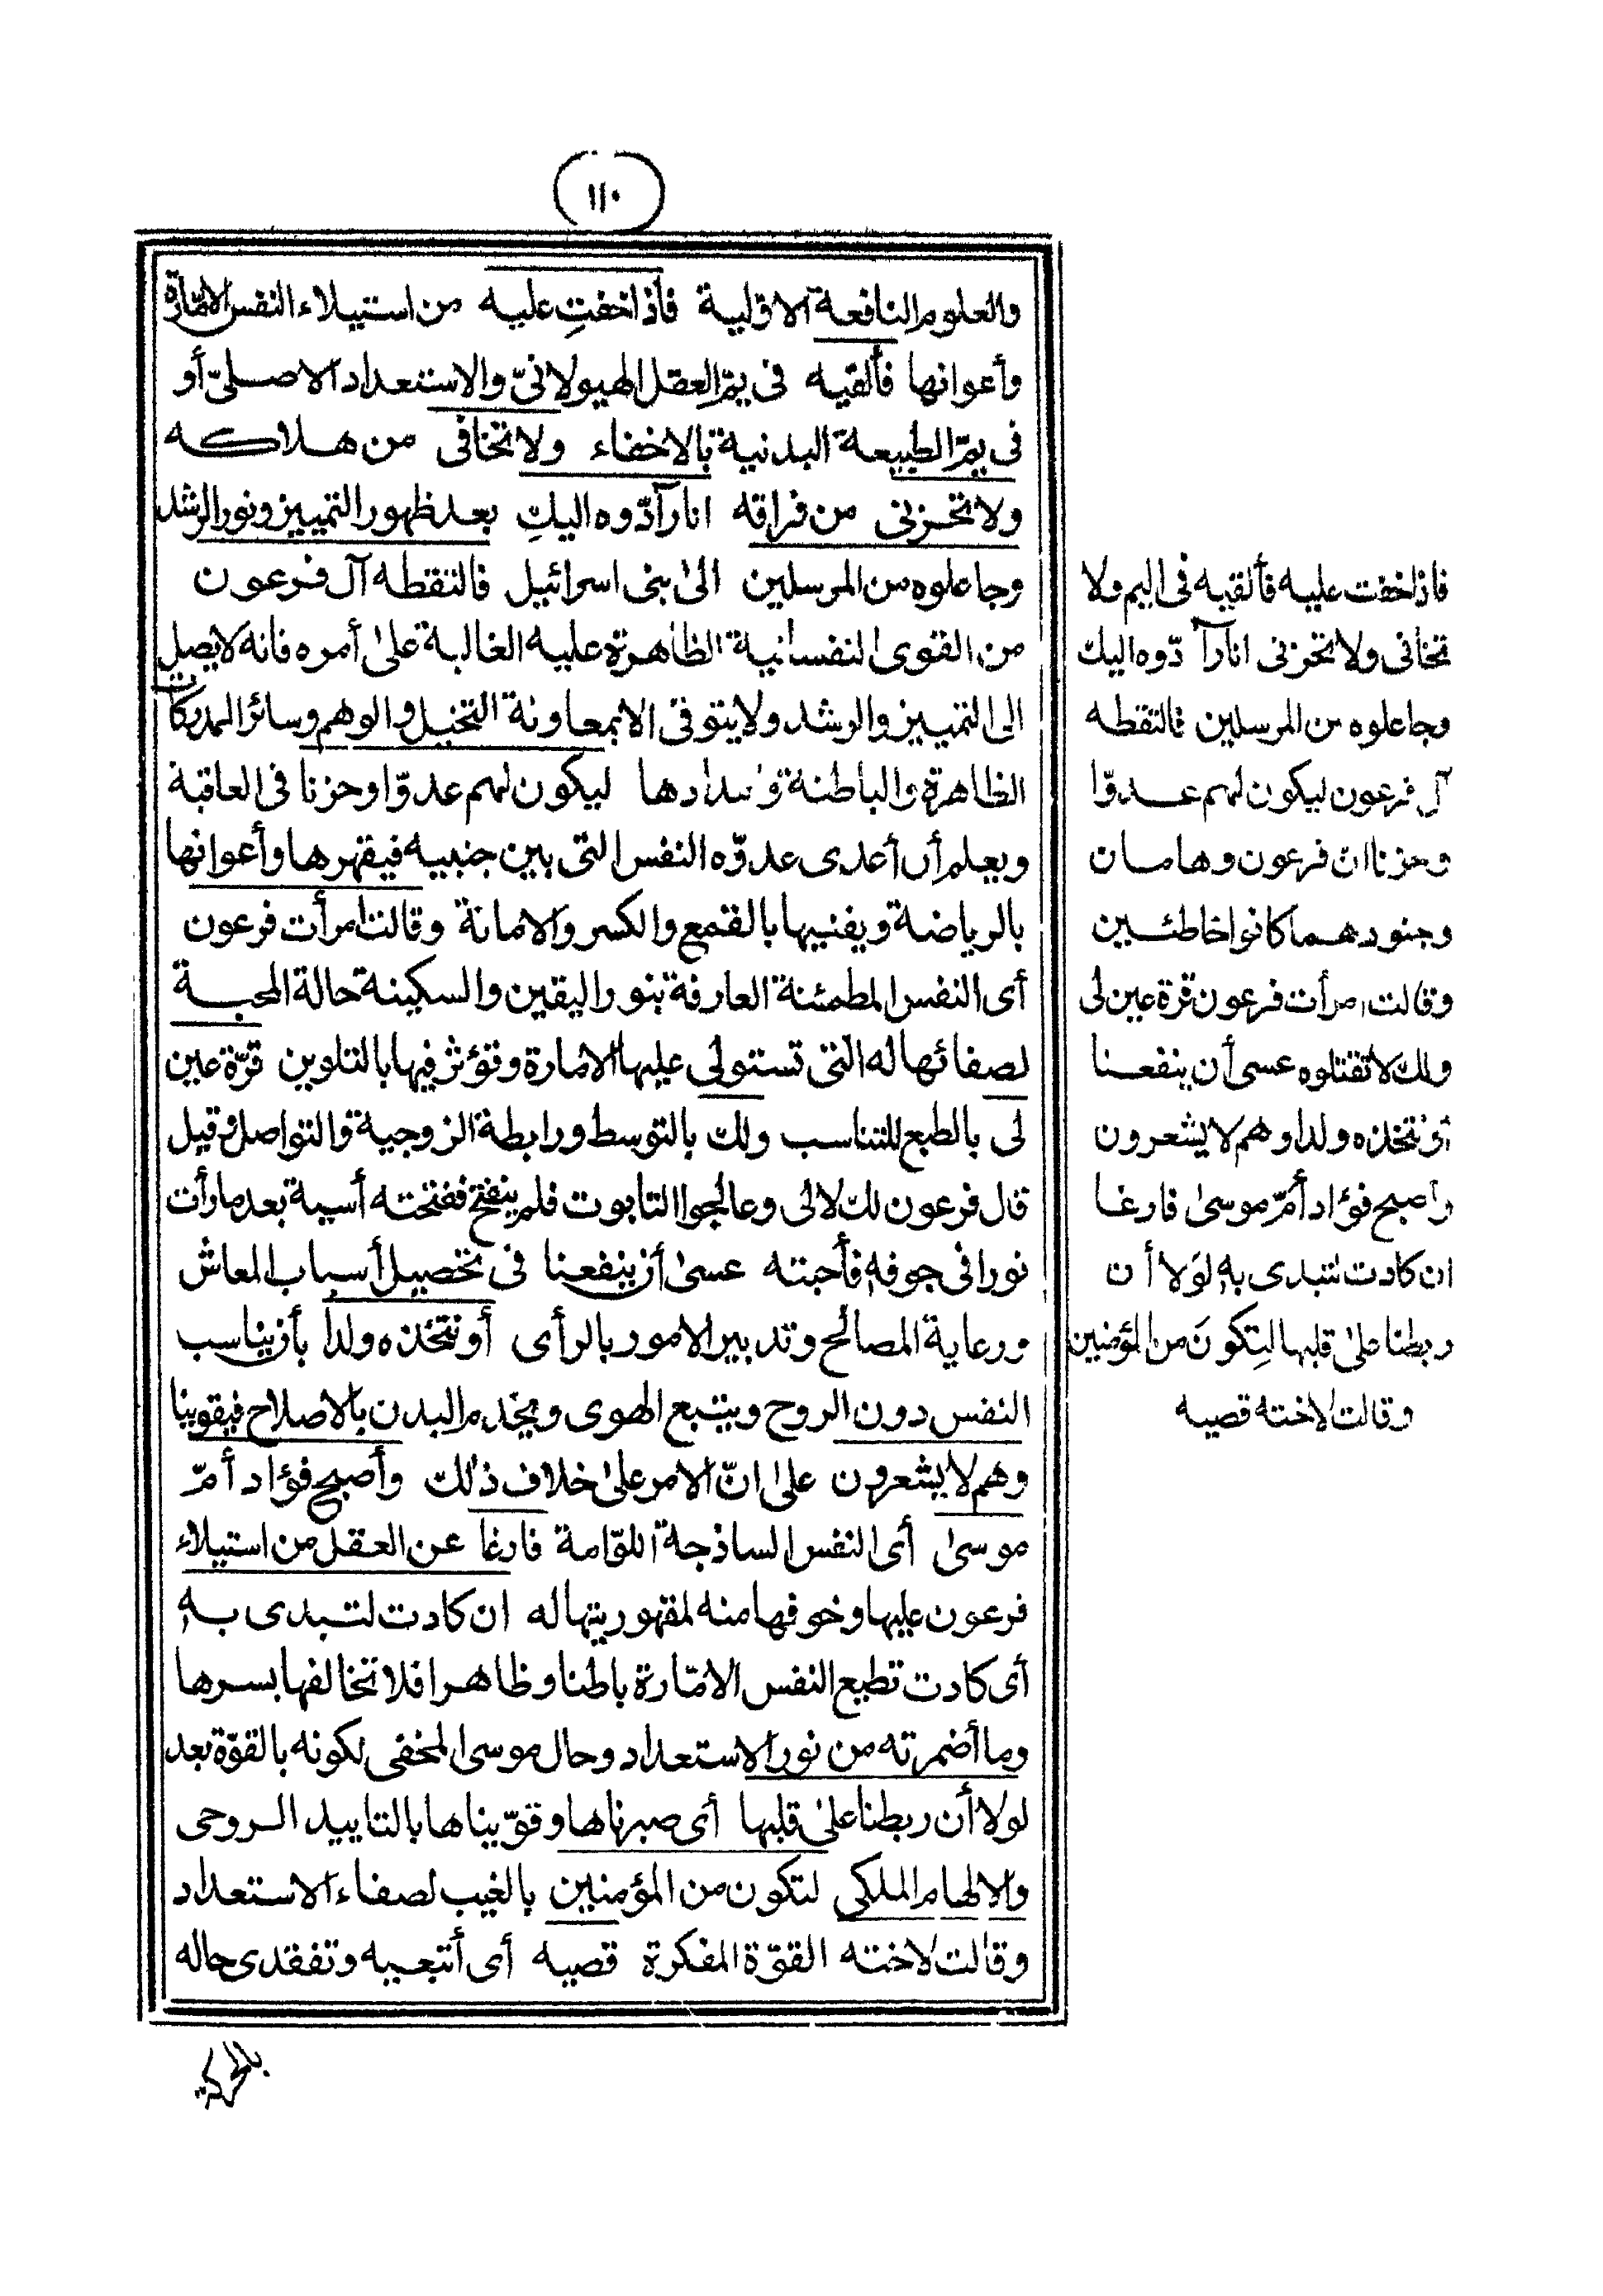 ١١٠
والعلوم النافعة الاوّلية فاذا خفتِ عليه من استيلاء النفس الامّارة
وأعوانها فألقيه فى يمّ العقل الهيولانىّ والاستعداد الاصلىّ أو
فى يمّ الطبيعة البدنية بالاخفاء ولا تخافى من هلاكه
ولا تحزنى من فراقه انا رآدّوه اليكِ بعد ظهور التمييز ونور الرشد
وجاعلوه من المرسلين الى بنى اسرائيل فالتقطه آل فرعون
من القوى النفسانية الظاهرة عليه الغالبة على أمره فانه لا يصل
الى التمييز والرشد ولا يتوقى الا بمعاونة التخيل والوهم وسائر المدركات
الظاهرة والباطنة وامدادها ليكون لهم عدوّا وحزنا فى العاقبة
ويعلم أن أعدى عدوّه النفس التى بين جنبيه فيقهرها وأعوانها
بالرياضة ويفنيها بالقمع والكسر والاماتة وقالت امرأت فرعون
أى النفس المطمئنة العارفة بنور اليقين والسكينة حالة المحبة
لصفائها له التى تستولى عليها الامارة وتؤثر فيها بالتلوين قرّة عين
لى بالطبع للتناسب ولك بالتوسط ورابطة الزوجية والتواصل وقيل
قال فرعون لك لا لى وعالجوا التابوت فلم ينفتح ففتحته أسية بعد ما رأت
نورا فى جوفه فأحبته عسى أن ينفعنا فى تحصيل أسباب المعاش
ورعاية المصالح وتدبير الامور بالرأى أو نتخذه ولدا بأن يناسب
النفس دون الروح ويتبع الهوى ويخدم البدن بالاصلاح فيقوينا
وهم لا يشعرون على انّ الامر على خلاف ذلك وأصبح فؤاد أمّ
موسى أى النفس الساذجة اللوّامة فارغا عن العقل من استيلاء
فرعون عليها وخوفها منه لمقهوريتها له ان كادت لتبدى به
أى كادت تطيع النفس الامّارة باطنا وظاهرا فلا تخالفها بسرها
وما أضمرته من نور الاستعداد وحال موسى المخفى لكونه بالقوّة بعد
لولا أن ربطنا على قلبها أى صبرناها وقوّيناها بالتاييد الروحى
والالهام الملكى لتكون من المؤمنين بالغيب لصفاء الاستعداد
وقالت لاخته القوّة المفكرة قصيه أى أتتبعيه وتفقدى حاله
فاذا خفت عليه فألقيه فى اليم ولا
تخافى ولا تحزنى انا رآدّوه اليك
وجاعلوه من المرسلين فالتقطه
آل فرعون ليكون لهم عدوّا
وحزنا ان فرعون وهامان
وجنودهما كانوا خاطئين
وقالت امرأت فرعون قرة عين لى
ولك لا تقتلوه عسى أن ينفعنا
أو نتخذه ولدا وهم لا يشعرون
وأصبح فؤاد أمّ موسى فارغا
ان كادت لتبدى به لولا أن
ربطنا على قلبها لتكونَ من المؤمنين
وقالت لاخته قصيه